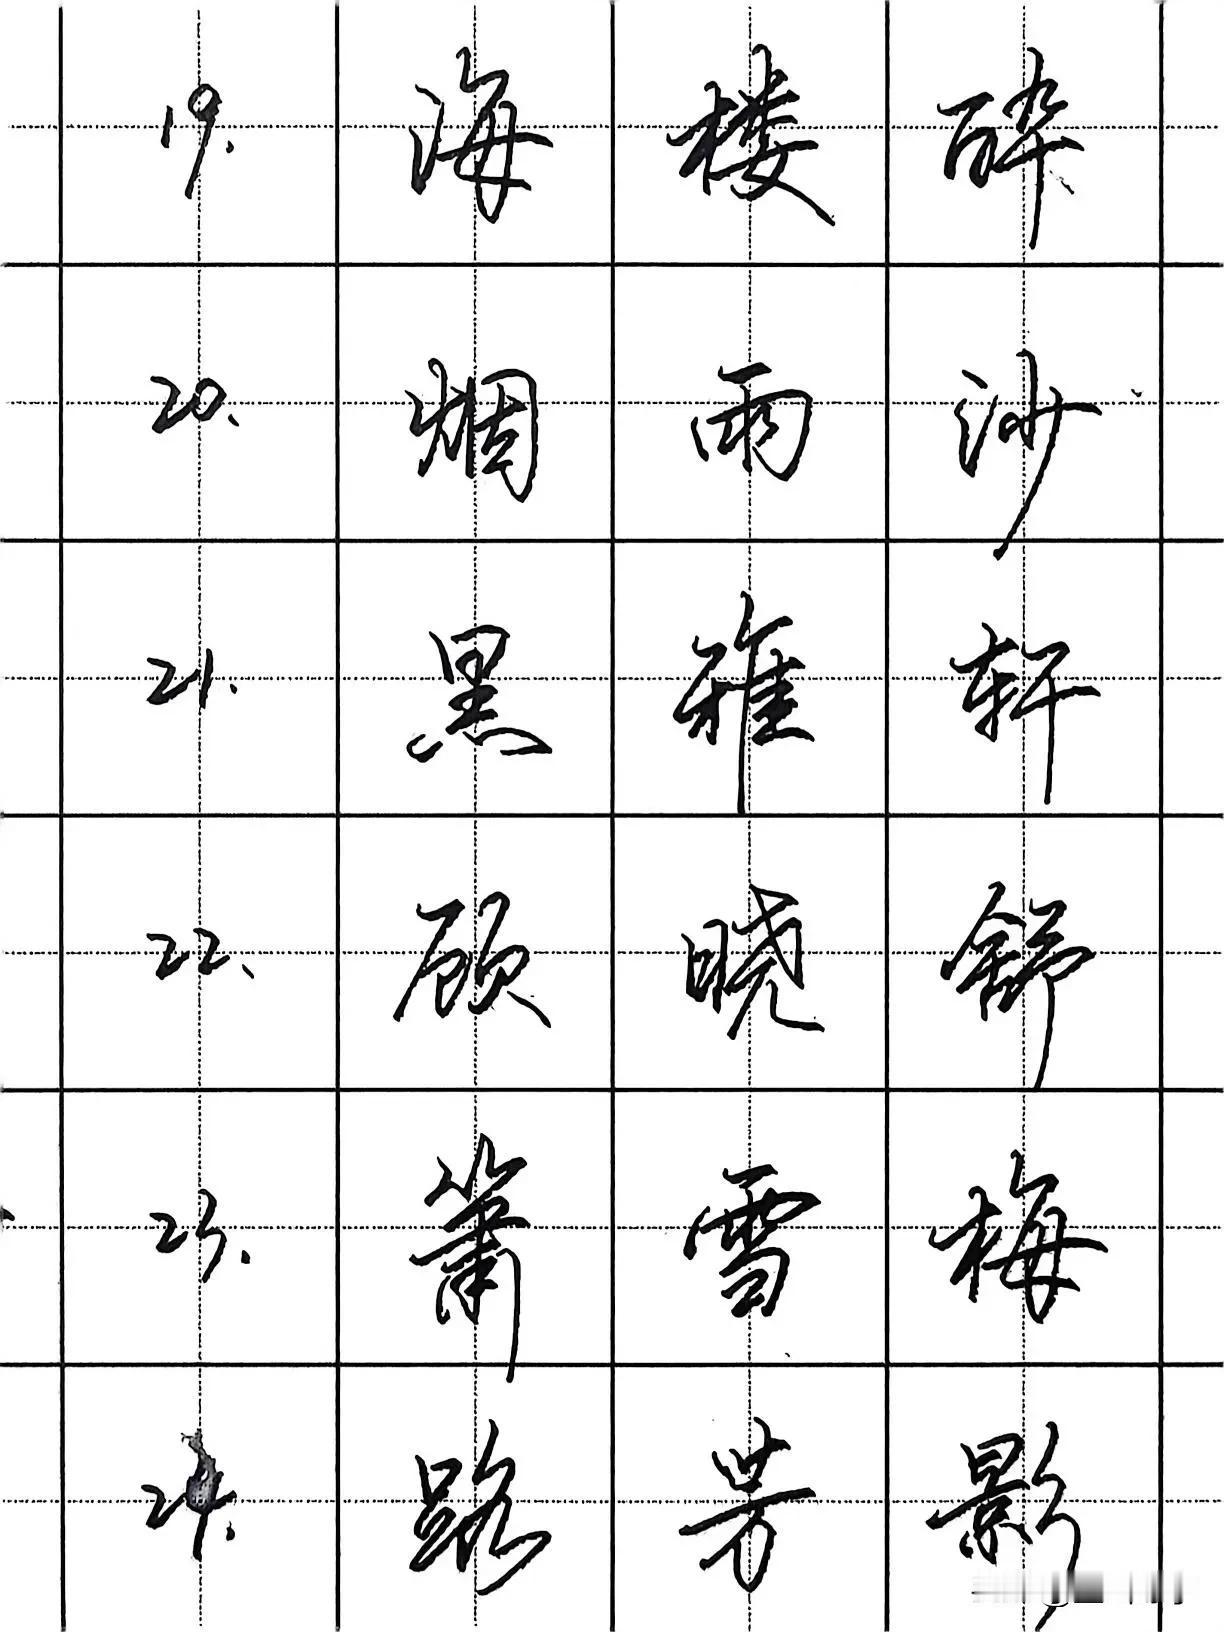 19. 海楼醉
20. 烟雨沙
21. 黑雅轩
22. 顾晓舒
23. 箫雪梅
24. 路芳影